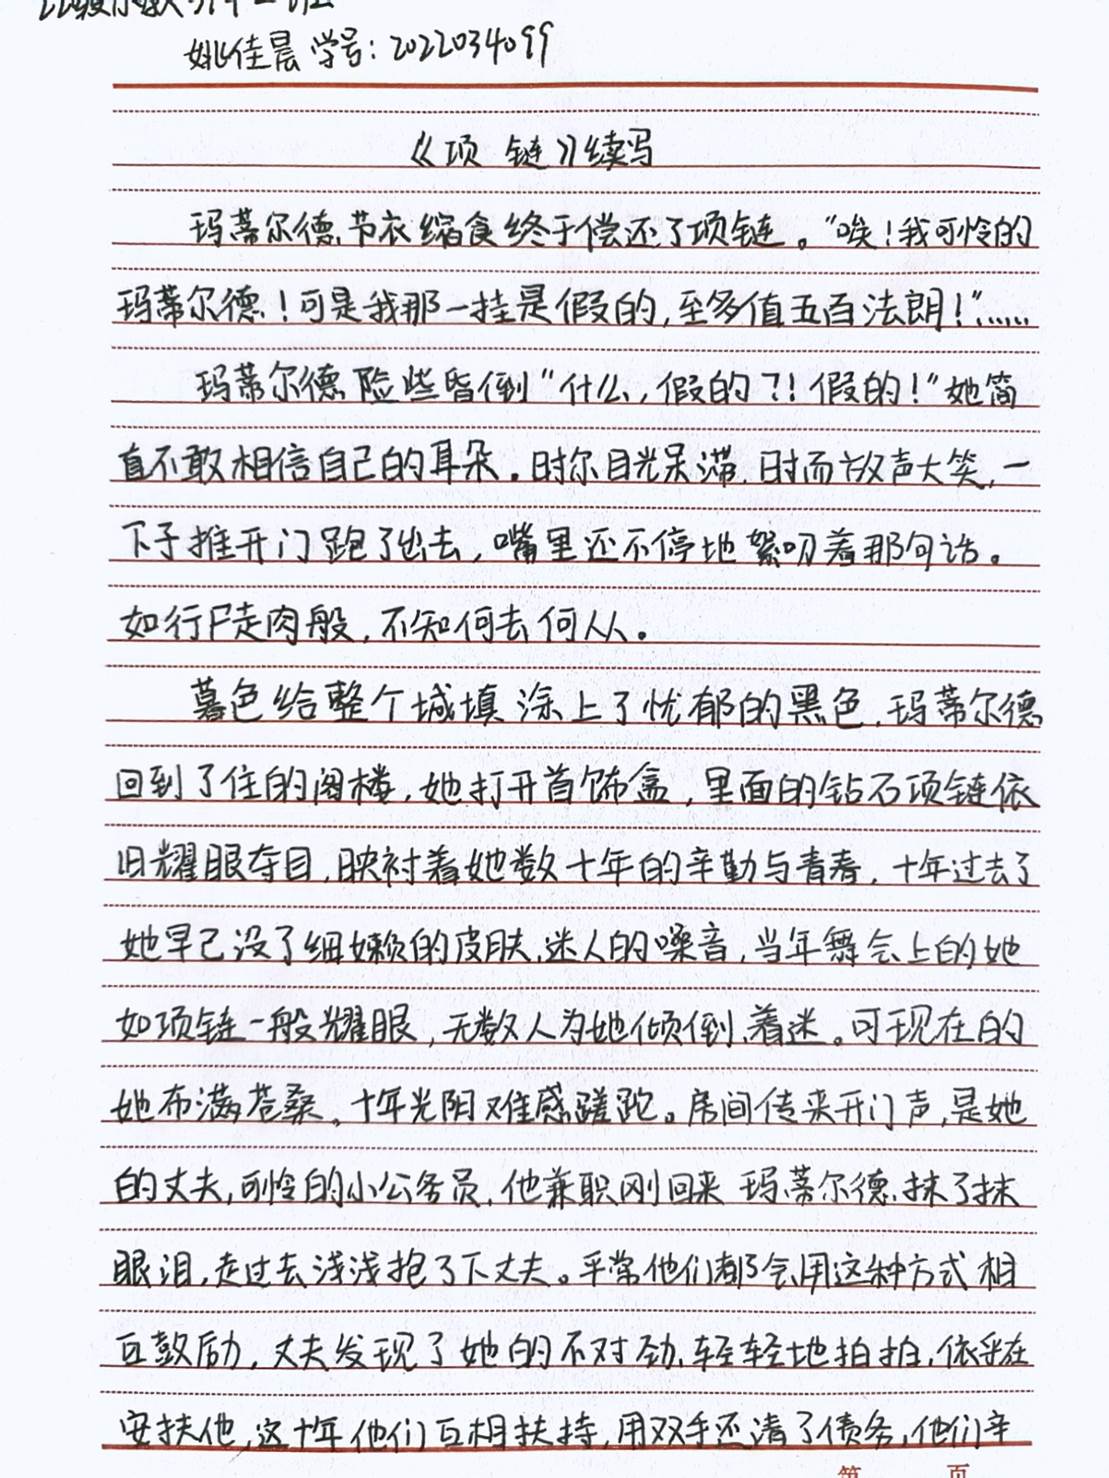 22级小教
姚佳晨 学号：2022034099
《项 链》续写
玛蒂尔德节衣缩食终于偿还了项链。“唉！我可怜的
玛蒂尔德！可是我那一挂是假的，至多值五百法朗！”……
玛蒂尔德险些昏倒“什么，假的？！假的！”她简
直不敢相信自己的耳朵。时尔目光呆滞，时而放声大笑，一
下子推开门跑了出去，嘴里还不停地絮叨着那句话。
如行尸走肉般，不知何去何从。
暮色给整个城填涂上了忧郁的黑色，玛蒂尔德
回到了住的阁楼，她打开首饰盒，里面的钻石项链依
旧耀眼夺目，映衬着她数十年的辛勤与青春，十年过去了
她早已没了细嫩的皮肤、迷人的嗓音，当年舞会上的她
如项链一般耀眼，无数人为她倾倒、着迷。可现在的
她布满苍桑，十年光阴难感蹉跎。房间传来开门声，是她
的丈夫，可怜的小公务员，他兼职刚回来 玛蒂尔德抹了抹
眼泪，走过去浅浅抱了下丈夫。平常他们都会用这种方式相
互鼓励，丈夫发现了她的不对劲，轻轻地拍拍，依乎在
安扶他，这十年他们互相扶持，用双手还清了债务，他们辛
第 页